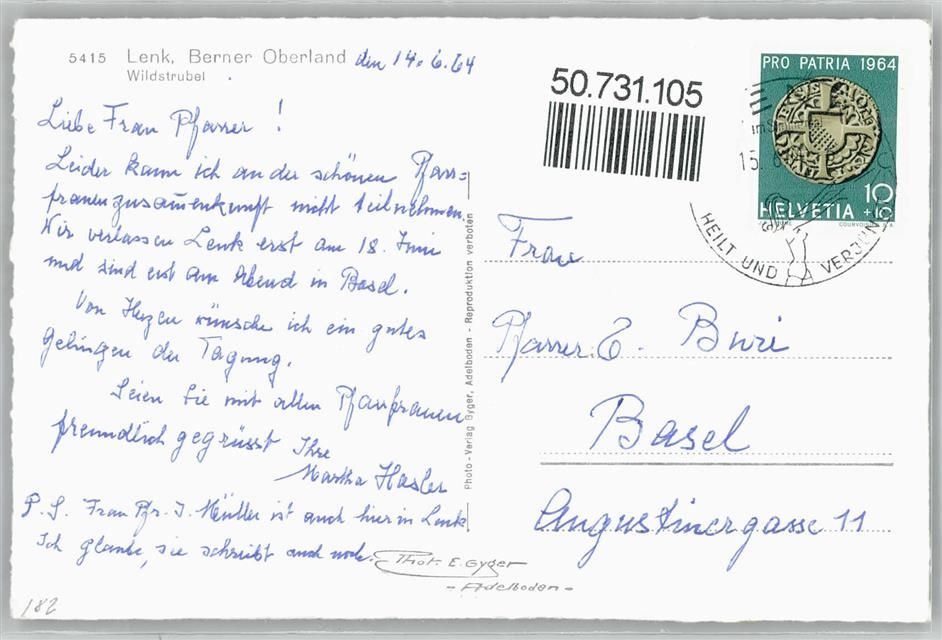 5415 Lenk, Berner Oberland den 14.6.64
Wildstrubel
Liebe Frau Pfarrer!
Leider kann ich an der schönen Pfarr=
frauenzusammenkunft nicht teilnehmen.
Wir verlassen Lenk erst am 18. Juni
und sind erst am Abend in Basel.
Von Herzen wünsche ich ein gutes
Gelingen der Tagung.
Seien Sie mit allen Pfarrfrauen
freundlich gegrüsst Ihre
Martha Hasler
P.S. Frau Pfr. J. Müller ist auch hier in Lenk
Ich glaube, sie schreibt auch noch.
Phot. E. Gyger
- Adelboden -
182
Photo-Verlag Gyger, Adelboden - Reproduktion verboten
50.731.105
PRO PATRIA 1964
10
+10
HELVETIA
COURVOISIER S.A.
15.
HEILT UND VERJÜN
Frau
Pfarrer E. Buri
Basel
Augustinergasse 11